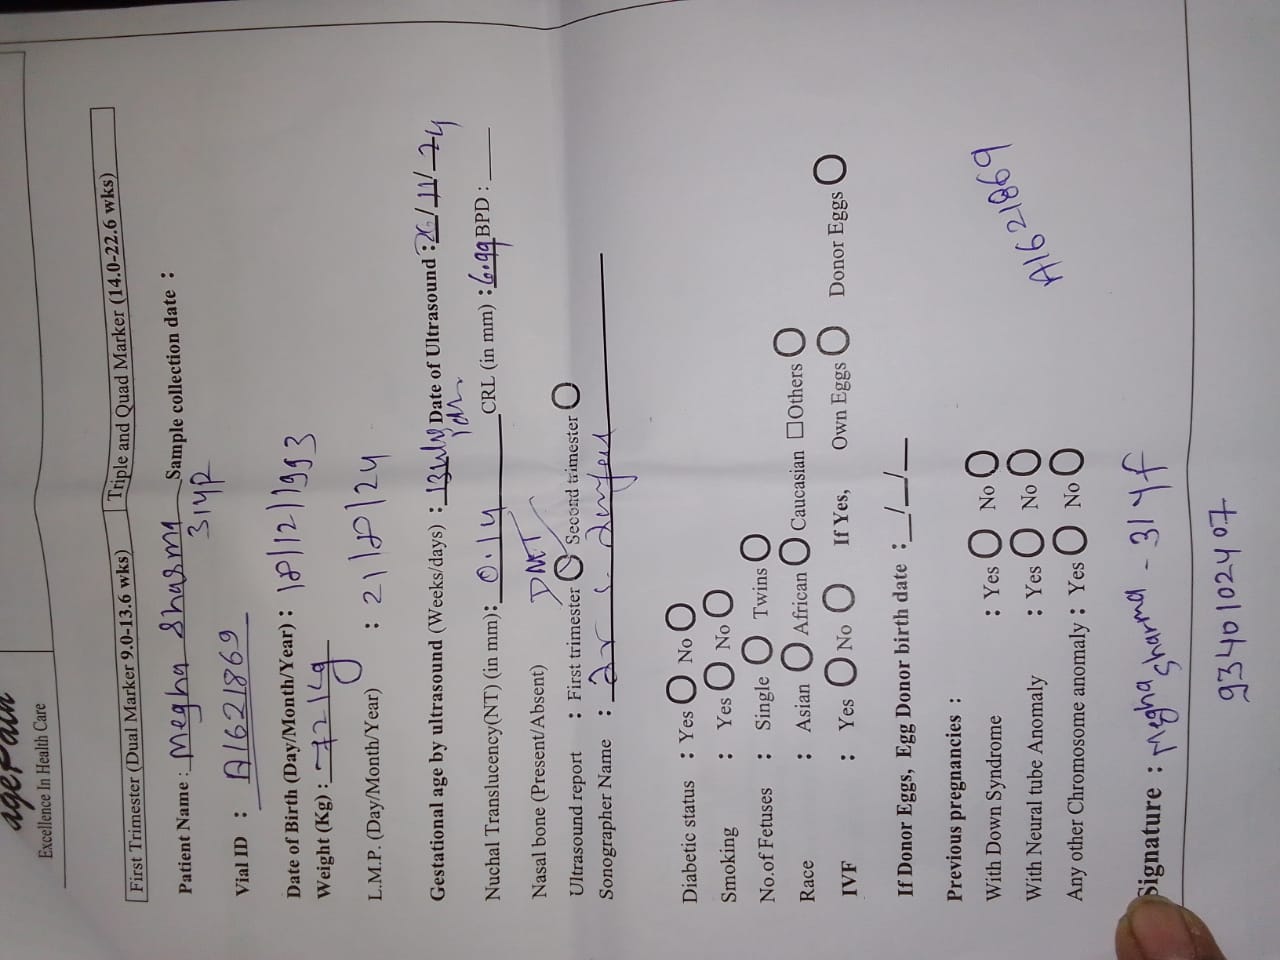 Excellence In Health Care
First Trimester (Dual Marker 9.0-13.6 wks) Triple and Quad Marker (14.0-22.6 wks)
Patient Name : Megha Sharma Sample collection date :
31yr
Vial ID : A1621869
Date of Birth (Day/Month/Year) : 18/12/1993
Weight (Kg) : 72 kg
L.M.P. (Day/Month/Year) : 21/8/24
Gestational age by ultrasound (Weeks/days) : 13w Date of Ultrasound : 26/11/24
Nuchal Translucency(NT) (in mm): 0.14 CRL (in mm) : 6.99 BPD :
Nasal bone (Present/Absent)
Ultrasound report : First trimester Second trimester
Sonographer Name :
Diabetic status : Yes No
Smoking : Yes No
No.of Fetuses : Single Twins
Race : Asian African Caucasian Others
IVF : Yes No If Yes, Own Eggs Donor Eggs
If Donor Eggs, Egg Donor birth date : _/_/_
Previous pregnancies :
With Down Syndrome : Yes No
With Neural tube Anomaly : Yes No
Any other Chromosome anomaly : Yes No
A1621869
Signature : Megha Sharma - 31 yf
9340102407